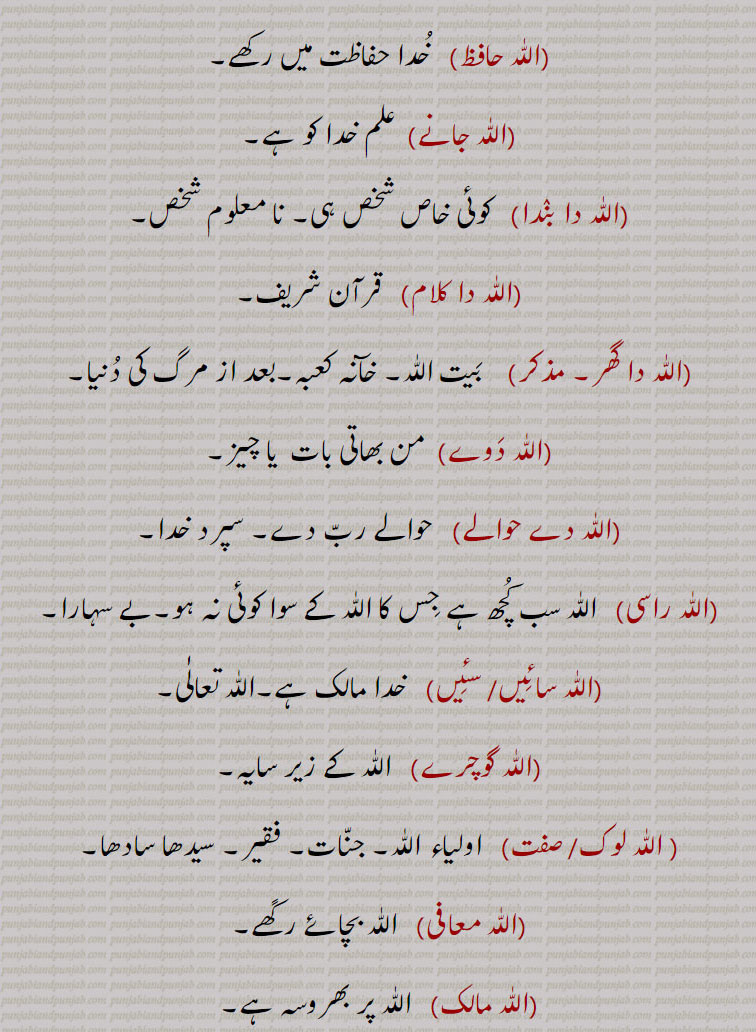 (اللہ حافظ) خُدا حفاظت میں رکھے۔
(اللہ جانے) علم خدا کو ہے۔
(اللہ دا بنْدا) کوئی خاص شخص ہی۔ نا معلوم شخص۔
(اللہ دا کلام) قرآن شریف۔
(اللہ دا گھر۔ مذکر) بَیت اللہ۔ خآنہ کعبہ۔بعد از مرگ کی دُنیا۔
(اللہ دَوے) من بھاتی بات یا چیز۔
(اللہ دے حوالے) حوالے ربّ دے۔ سپرد خدا۔
(اللہ راسی) اللہ سب کُچھ ہے جِس کا اللہ کے سوا کوئی نہ ہو۔بے سہارا۔
(اللہ سائِیں/ سئِیں) خدا مالک ہے۔اللہ تعالٰی۔
(اللہ گوچرے) اللہ کے زیر سایہ۔
( اللہ لوک/ صفت) اولیاء اللہ۔ جنّات۔ فقیر۔ سیدھا سادھا۔
(اللہ معافی) اللہ بچائے رکّھے۔
(اللہ مالک) اللہ پر بھروسہ ہے۔